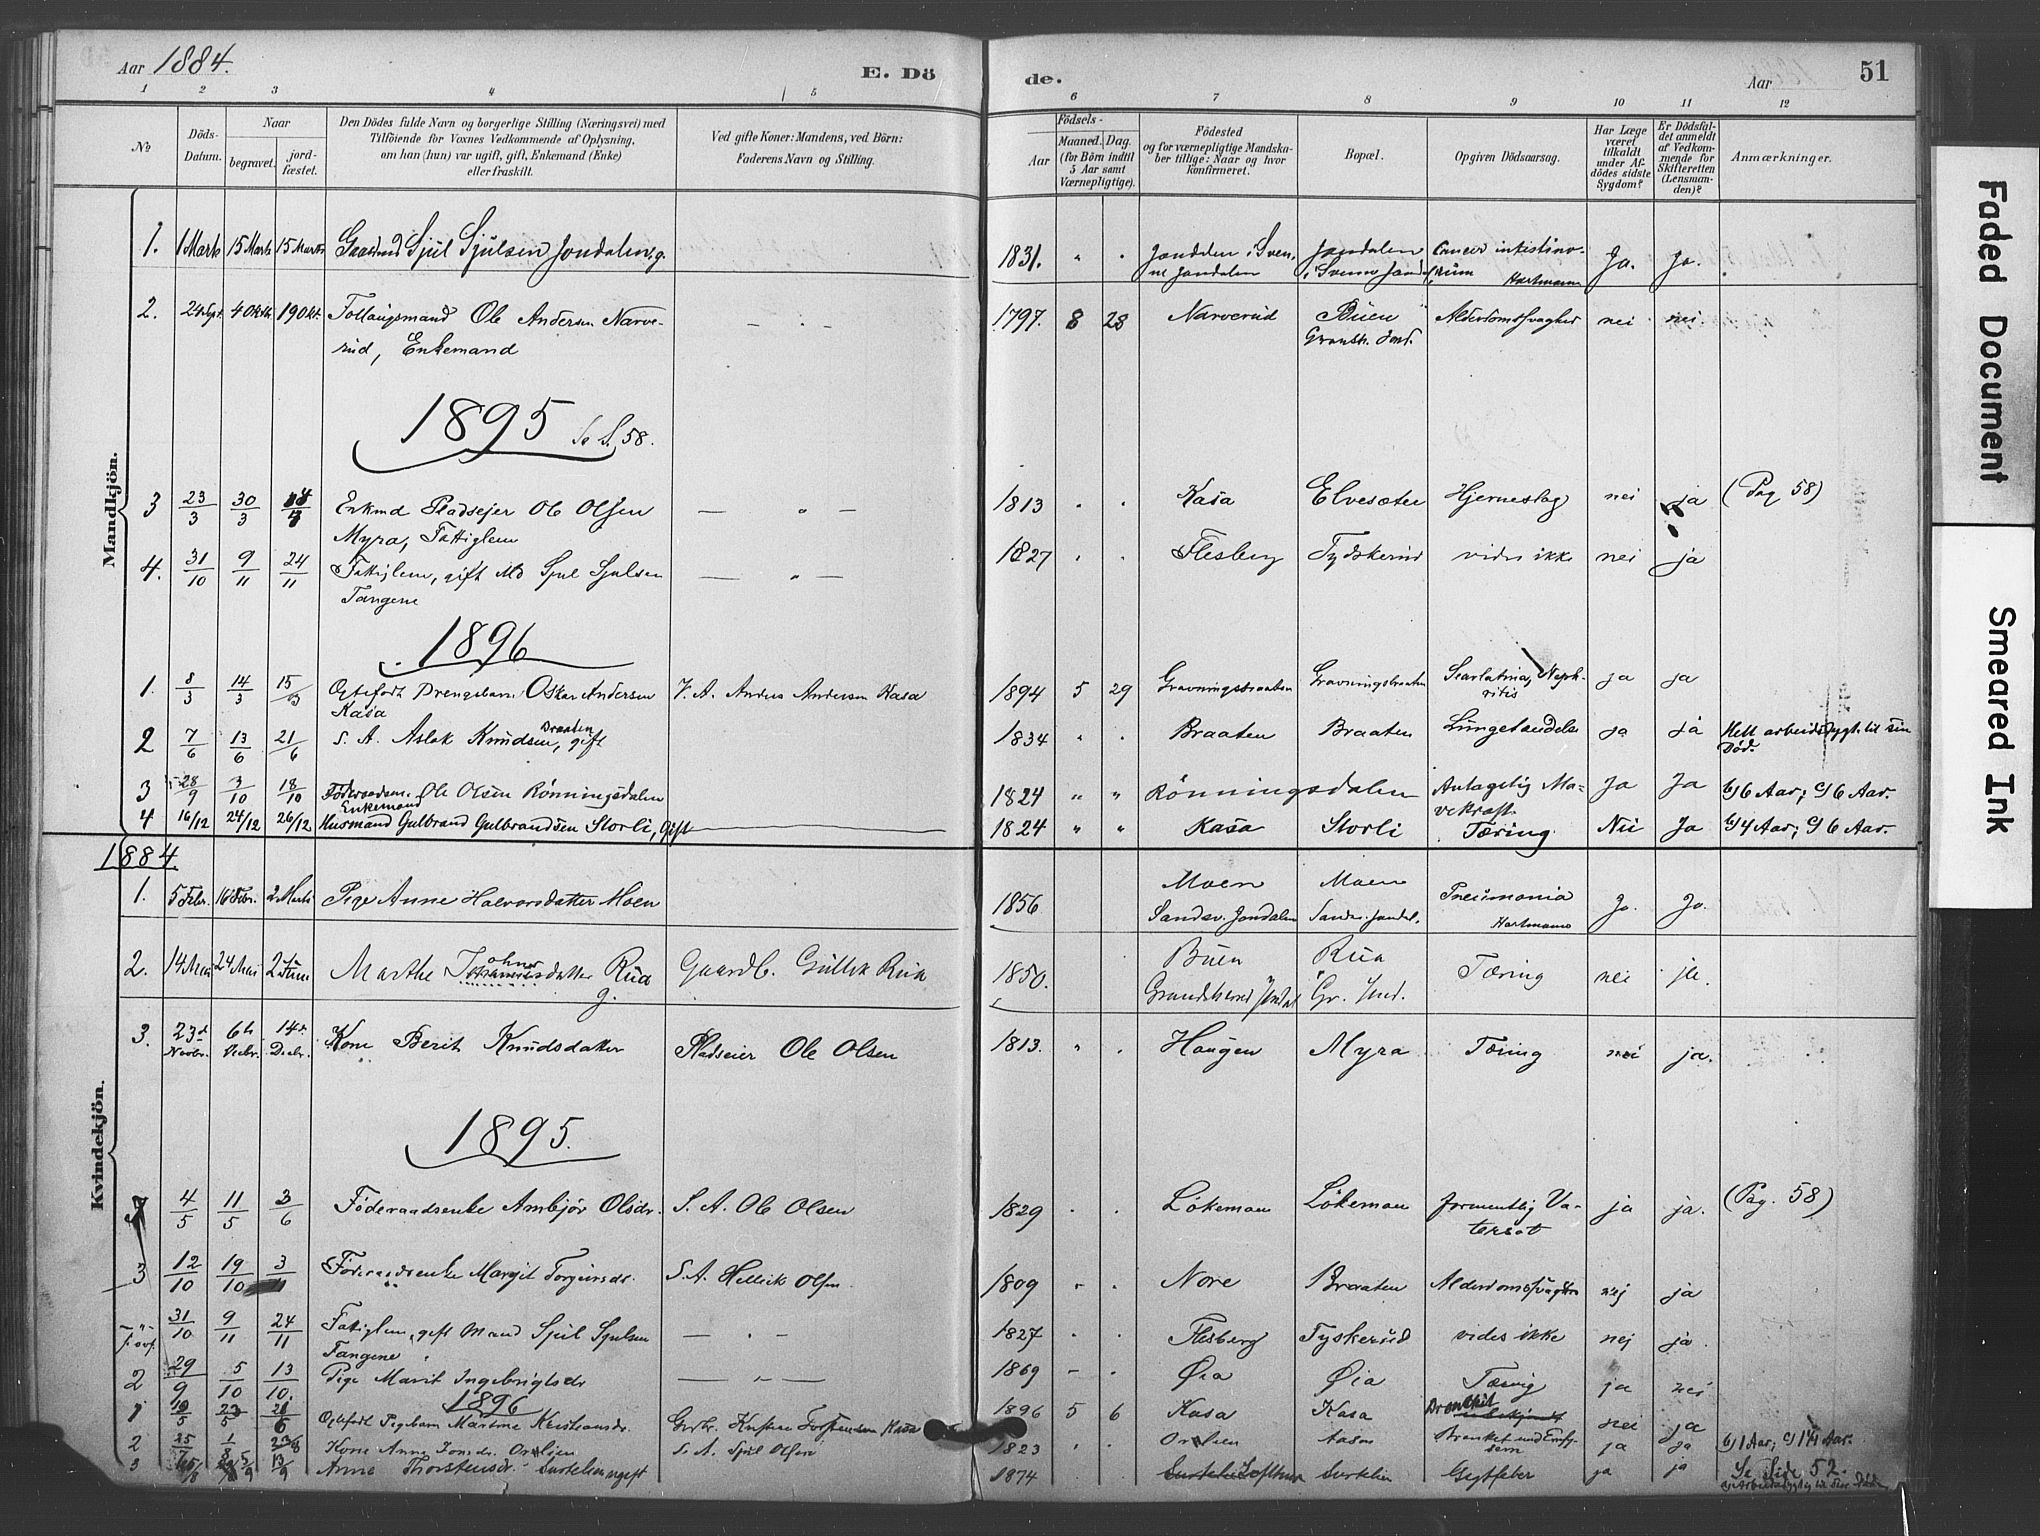 Aar 1884.
E. Dö
de.
Aar
51
1 2 3 4 5 6 7 8 9 10 11 12
№
Döds-
Datum.
Naar
begravet.
jord-
fæstet.
Den Dödes fulde Navn og borgerlige Stilling (Næringsvei) med
Tilföiende for Voxnes Vedkommende af Oplysning,
om han (hun) var ugift, gift, Enkemand (Enke)
eller fraskilt.
Ved gifte Koner: Mandens, ved Börn:
Faderens Navn og Stilling.
Födsels-
Aar
Maaned. Dag.
(for Börn indtil
5 Aar samt
Værnepligtige).
Födested
og for værnepligtige Mandska-
ber tillige: Naar og hvor
konfirmeret.
Bopæl.
Opgiven Dödsaarsag.
Har Læge
været
tilkaldt
under Af-
dödes sidste
Sygdom?
Er Dödsfal-
det anmeldt
af Vedkom-
mende for
Skifteretten
(Lensman-
den)?
Anmærkninger.
Mandkjön.
1. 1 Marts 15 Marts 15 Marts Sjul Sjulsen Jondalen, g. 1831. Jondalen i Sven- Jondalen Cancer intestino- Ja. Ja.
ne Jondalen i Svenne rum Hartmann
2. 24 Sept. 4 Oktb. 19 Okt. Ole Andersen Narve- 1797. 8 28 Narverud Buen Alderdomssvaghed nei nei.
rud, Enkemand Gransh. Jond.
1895 Se S. 58.
3 23/3 30/3 Enkmd Pladseier Ole Olsen 1813 Kasa Elvesæter Hjerneslag nei ja (Pag 58)
Myra, Fattiglem
4. 31/10 9/11 24/11 Fattiglem, gift Md Sjul Sjulsen 1827 Flesberg Tydskerud vides ikke nei ja
Tangene
1896
1. 8/3 14/3 15/3 Egtefødt Drengebarn Oskar Andersen F. A. Anders Andersen Kasa 1894 5 29 Gravningsbraaten Gravningsbraaten Scarlatina, Neph- ja ja
Kasa ritis
2 7/6 13/6 21/6 S. A. Aslak Knudsen Braaten, gift 1834 Braaten Braaten Lungebetændelse ja ja Helt arbeidsdygt. til sin
Død.
3 28/9 3/10 18/10 Føderaadsm. Ole Olsen Rønningsdalen 1824 " " Rønningsdalen Antagelig Ma- Ja Ja b) 6 Aar; c) 6 Aar.
Enkemand vekræft
4 16/12 24/12 26/12 Husmand Gulbrand Gulbrandsen Storli, gift 1824 " " Kasa Storli Tæring. Nei Ja b) 4 Aar; c) 6 Aar.
Kvindekjön.
1884.
1. 5 Febr. 16 Febr. 2 Marts Pige Anne Halvorsdatter Moen 1856 Moen Moen Pneumonia Ja. Ja.
Sandsv. Jondalen Sandsv. Jondal. Hartmann
2. 14 Mai 24 Mai 2 Juni Marthe Johnesdatter Rua Gaardb. Gullik Rua 1850. Buen Rua Tæring nei ja.
g. Grandsherad Jondal Gr. Jond.
3. 23d 6te 14de Kone Berit Knudsdatter Pladseier Ole Olsen 1813. Haugen Myra Tæring nei ja.
Novbr. Decbr. Decbr.
1895.
4/5 11/5 3/6 Föderaadsenke Ambjør Olsdr. S. A. Ole Olsen 1829 Løkemoen Løkemoen formentlig Va- ja ja. (Pag. 58)
tersot
3 12/10 19/10 3/11 Föderaadsenke Margit Torgersdr. S. A. Hellik Olsen 1809 Nore Braaten Alderdomssvaghed nej ja
31/10 9/11 24/11 Fattiglem, gift Mand Sjul Sjulsen 1827 Flesberg Tyskerud vides ikke nej ja
Tangene
2 29/9 5/10 13/10. Pige Marit Ingebrigtsdr 1869 Øia Øia Tæring ja nei
1896
1 Egtefødt Pigebarn Martine Kristiansdr. Kasa 1896 5 6 Kasa Kasa Bronchit nei ja
2 25/7 1/8 23/8 Kone Anne Jonsdr. S. A. Sjul Olsen 1823 Kasa ja ja b) 1 Aar;
3 13/9 Anne Thorstensdr. ugift 1874 Gigtfeber ja ja Se Side 52.
Faded Document
Smeared Ink